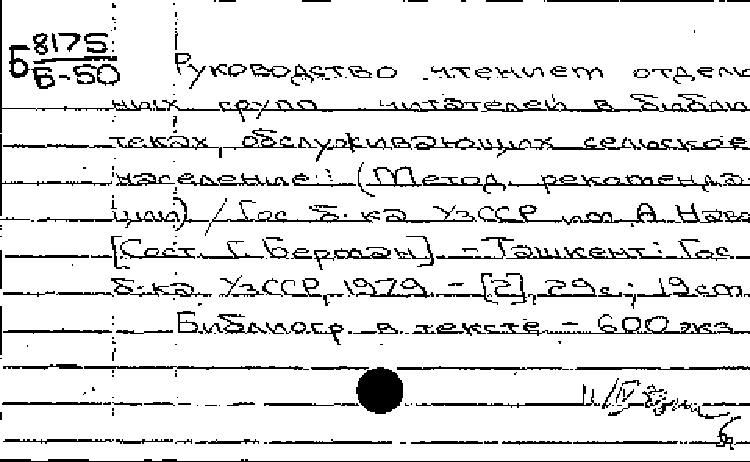 Б 8175
Б-50
Руководство чтением отдель
ных групп читателей в библио
теках, обслуживающих сельское
население: (Метод. рекоменда-
ции) / Гос б-ка УзССР им. А Наво
[Сост. Г. Берман]. - Ташкент: Гос
б-ка УзССР, 1979. - [2], 29с.; 19см
Библиогр. в тексте - 600 экз
6